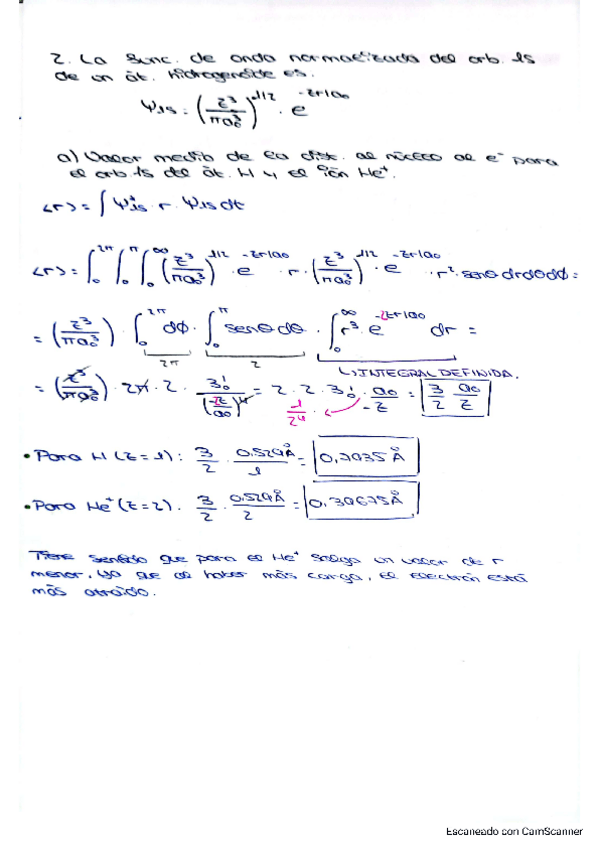 2. La func. de onda normalizada del orb. 1s
de un át. hidrogenoide es.
Ψ1s = (z³/πa₀³)^1/2 · e^-zr/a₀
a) Valor medio de la dist. al núcleo al e⁻ para
el orb. 1s del át. H y el ión He⁺.
<r> = ∫ Ψ*1s · r · Ψ1s dτ
<r> = ∫₀^2π ∫₀^π ∫₀^∞ (z³/πa₀³)^1/2 · e^-zr/a₀ · r · (z³/πa₀³)^1/2 · e^-zr/a₀ · r² · senθ dr dθ dϕ =
= (z³/πa₀³) · ∫₀^2π dϕ · ∫₀^π senθ dθ · ∫₀^∞ r³ · e^-2zr/a₀ dr =
2π 2 ↳ INTEGRAL DEFINIDA.
= (z³/πa₀³) · 2π · 2 · 3!/(-2z/a₀)⁴ = 2 · 2 · 3! · a₀/-z = 3/2 a₀/z
1/2⁴ ·
• Para H (z=1): 3/2 · 0,529Å/1 = 0,7935 Å
• Para He⁺ (z=2). 3/2 · 0,529Å/2 = 0,39675Å
Tiene sentido que para el He⁺ salga un valor de r
menor, ya que al haber más carga, el electrón está
más atraído.
Escaneado con CamScanner